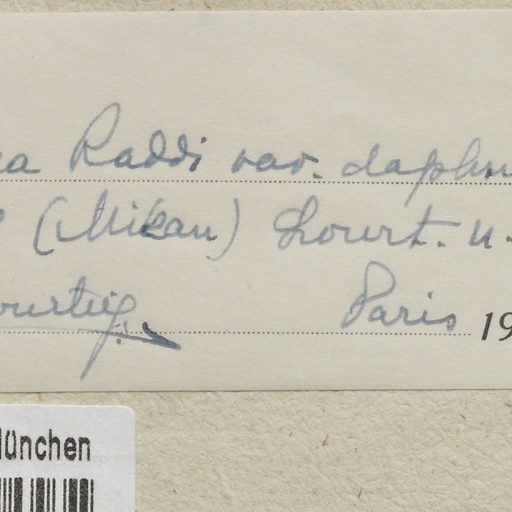 Raddi var. daphn
(Mikan) Lourt. n.
ourteig Paris 19
München